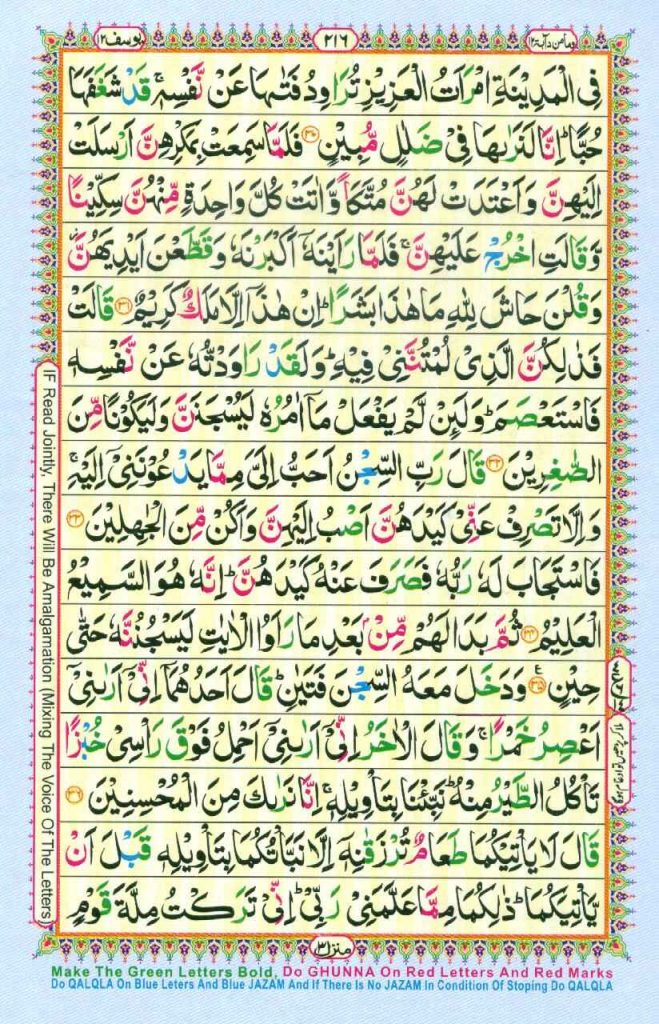 یوسف ۱۲
۲۱۶
وما من دآبة ۱۲
فِى الْمَدِیْنَةِ امْرَاَتُ الْعَزِیْزِ تُرَاوِدُ فَتٰىهَا عَنْ نَّفْسِهٖ ۚ قَدْ شَغَفَهَا
حُبًّا ؕ اِنَّا لَنَرٰىهَا فِیْ ضَلٰلٍ مُّبِیْنٍ ۳۰ فَلَمَّا سَمِعَتْ بِمَكْرِهِنَّ اَرْسَلَتْ
اِلَیْهِنَّ وَاَعْتَدَتْ لَهُنَّ مُتَّكَاً وَّاٰتَتْ كُلَّ وَاحِدَةٍ مِّنْهُنَّ سِكِّیْنًا
وَّقَالَتِ اخْرُجْ عَلَیْهِنَّ ۚ فَلَمَّا رَاَیْنَهٗۤ اَكْبَرْنَهٗ وَقَطَّعْنَ اَیْدِیَهُنَّ ؗ
وَقُلْنَ حَاشَ لِلّٰهِ مَا هٰذَا بَشَرًا ؕ اِنْ هٰذَاۤ اِلَّا مَلَكٌ كَرِیْمٌ ۳۱ قَالَتْ
فَذٰلِكُنَّ الَّذِیْ لُمْتُنَّنِیْ فِیْهِ ؕ وَلَقَدْ رَاوَدْتُّهٗ عَنْ نَّفْسِهٖ
فَاسْتَعْصَمَ ؕ وَلَىِٕنْ لَّمْ یَفْعَلْ مَاۤ اٰمُرُهٗ لَیُسْجَنَنَّ وَلَیَكُوْنًا مِّنَ
الصّٰغِرِیْنَ ۳۲ قَالَ رَبِّ السِّجْنُ اَحَبُّ اِلَیَّ مِمَّا یَدْعُوْنَنِیْۤ اِلَیْهِ ۚ
وَاِلَّا تَصْرِفْ عَنِّیْ كَیْدَهُنَّ اَصْبُ اِلَیْهِنَّ وَاَكُنْ مِّنَ الْجٰهِلِیْنَ ۳۳
فَاسْتَجَابَ لَهٗ رَبُّهٗ فَصَرَفَ عَنْهُ كَیْدَهُنَّ ؕ اِنَّهٗ هُوَ السَّمِیْعُ
الْعَلِیْمُ ۳۴ ثُمَّ بَدَا لَهُمْ مِّنْۢ بَعْدِ مَا رَاَوُا الْاٰیٰتِ لَیَسْجُنُنَّهٗ حَتّٰى
حِیْنٍ ۳۵ وَدَخَلَ مَعَهُ السِّجْنَ فَتَیٰنِ ؕ قَالَ اَحَدُهُمَاۤ اِنِّیْۤ اَرٰىنِیْۤ
اَعْصِرُ خَمْرًا ۚ وَقَالَ الْاٰخَرُ اِنِّیْۤ اَرٰىنِیْۤ اَحْمِلُ فَوْقَ رَاْسِیْ خُبْزًا
تَاْكُلُ الطَّیْرُ مِنْهُ ؕ نَبِّئْنَا بِتَاْوِیْلِهٖ ۚ اِنَّا نَرٰىكَ مِنَ الْمُحْسِنِیْنَ ۳۶
قَالَ لَا یَاْتِیْكُمَا طَعَامٌ تُرْزَقٰنِهٖۤ اِلَّا نَبَّاْتُكُمَا بِتَاْوِیْلِهٖ قَبْلَ اَنْ
یَّاْتِیَكُمَا ؕ ذٰلِكُمَا مِمَّا عَلَّمَنِیْ رَبِّیْ ؕ اِنِّیْ تَرَكْتُ مِلَّةَ قَوْمٍ
منزل ۳
IF Read Jointly, There Will Be Amalgamation (Mixing The Voice Of The Letters)
Make The Green Letters Bold, Do GHUNNA On Red Letters And Red Marks
Do QALQLA On Blue Leters And Blue JAZAM And If There Is No JAZAM In Condition Of Stoping Do QALQLA